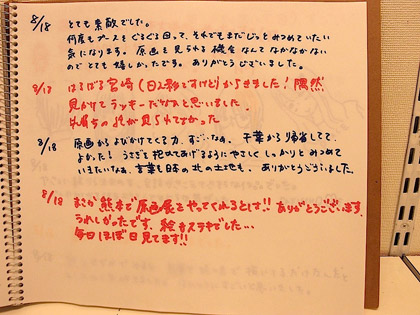 8/18 とても素敵でした。
何度もブースをぐるぐる回って、それでもまだじっとみつめていたい
気になります。原画を見られる機会なんてなかなかない
のでとても嬉しかったです。ありがとうございました。
8/17 はるばる宮崎(日之影ですけど)からきました!偶然
見かけてラッキーだなぁと思いました。
絵が見られてよかった
8/18 原画からよびかけてくる力、すごいなぁ、千葉から帰省してて
よかった!うさぎを抱きあげるようにやさしくしっかりとみつめて
いきたいなぁ、言葉も日本の土地も、ありがとうございました。
8/18 まさか熊本で原画展をやってくれるとは!!ありがとうございます。
うれしかったです。絵もステキでした…
毎日ほぼ日見てます!!